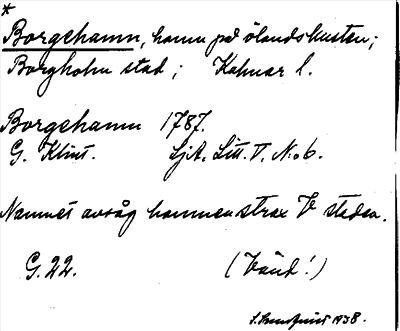 *
Borgehamn, hamn på ölandskusten;
Borgholm stad; Kalmar l.
Borgehamn 1787.
G. Klint. SjA. Litt. V. No 6.
Namnet avsåg hamnen strax V staden.
G. 22. (Vänd!)
1938.